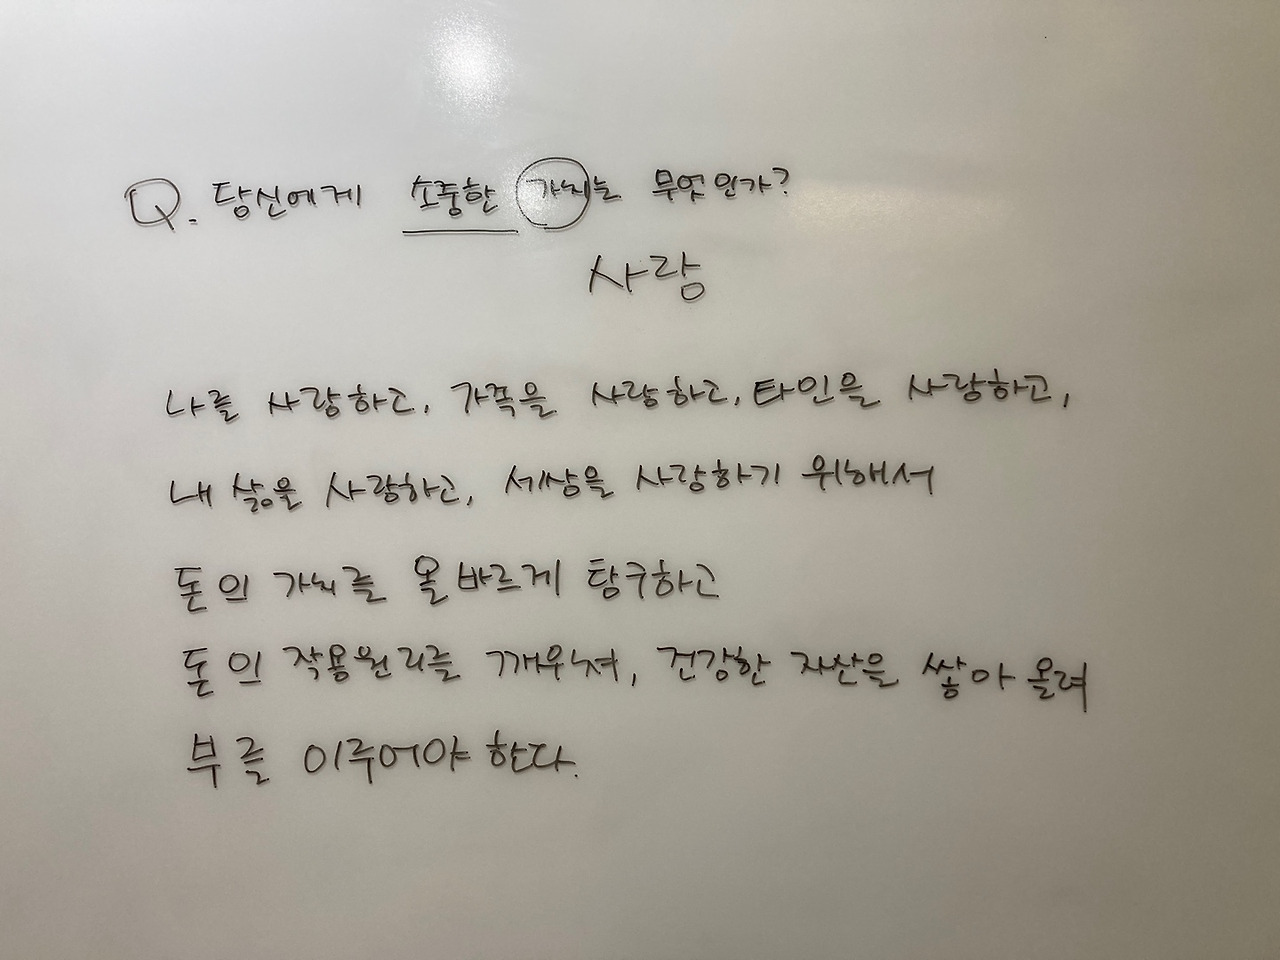 Q. 당신에게 소중한 가치는 무엇인가?
사랑
나를 사랑하고, 가족을 사랑하고, 타인을 사랑하고,
내 삶을 사랑하고, 세상을 사랑하기 위해서
돈의 가치를 올바르게 탐구하고
돈의 작용원리를 깨우쳐, 건강한 자산을 쌓아올려
부를 이루어야 한다.